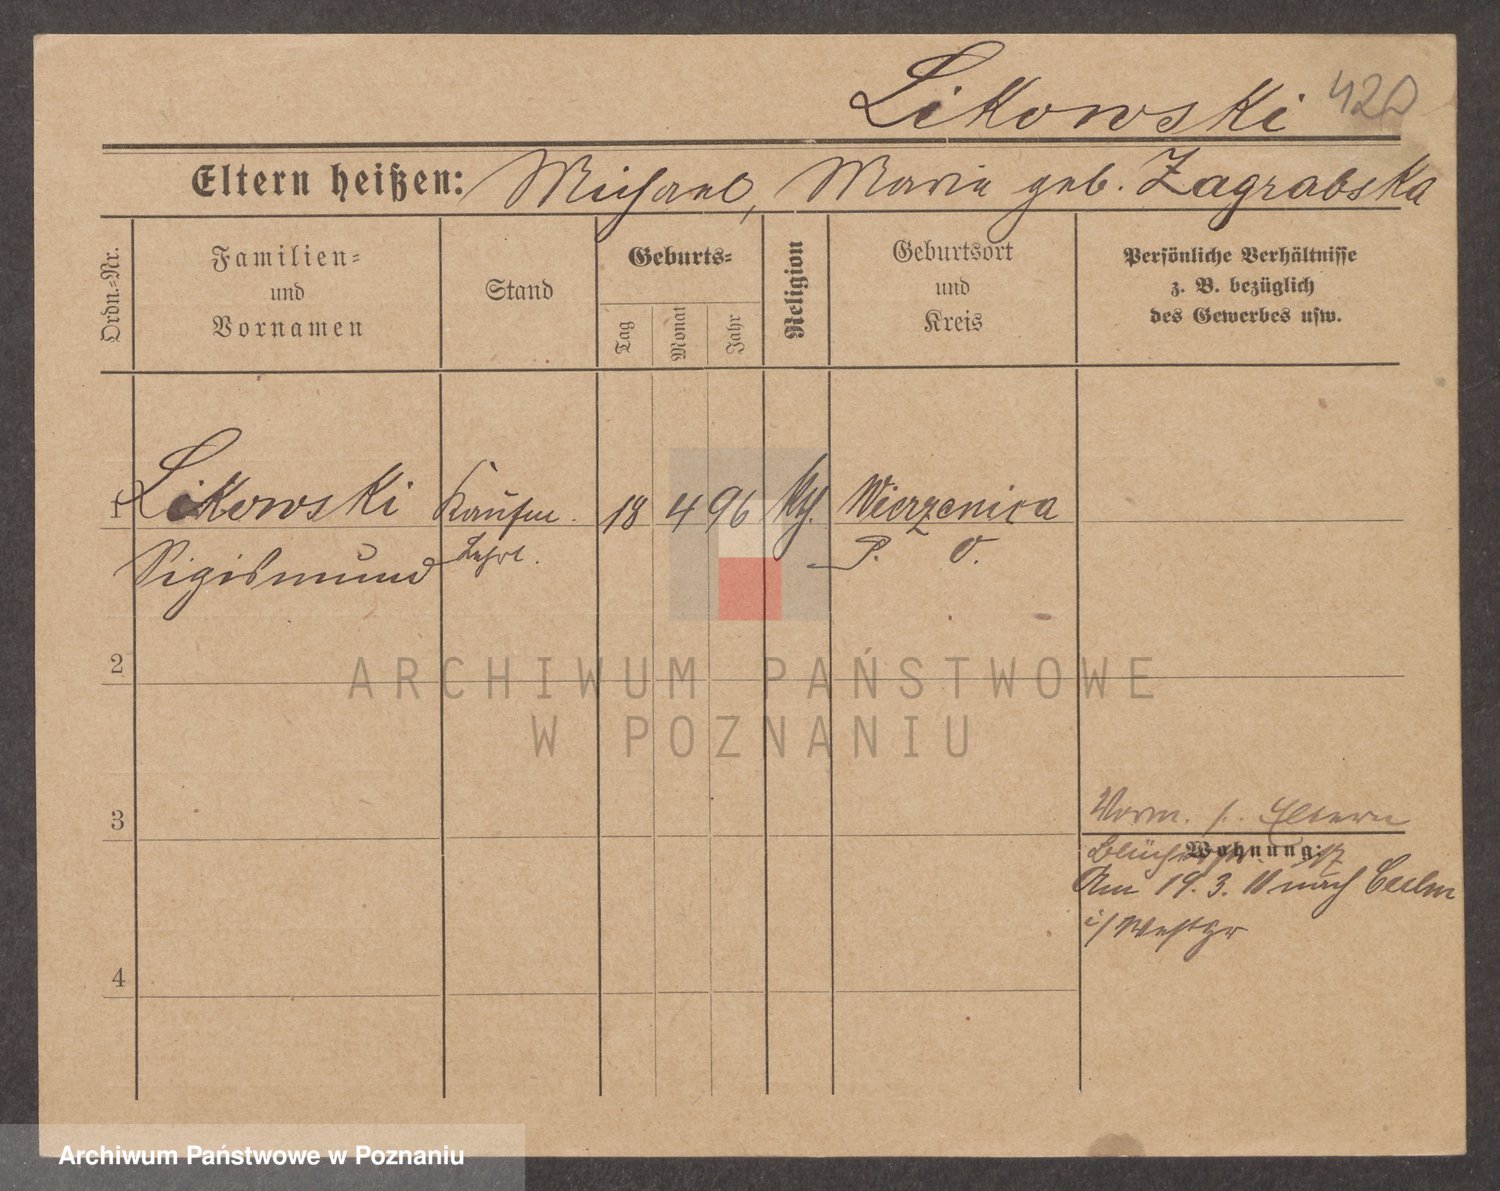 Likowski 420
Eltern heißen: Michael, Maria geb. Zagrabska
Ordn.=Nr.
Familien=
und
Vornamen
Stand
Geburts=
Tag
Monat
Jahr
Religion
Geburtsort
und
Kreis
Persönliche Verhältnisse
z. B. bezüglich
des Gewerbes usw.
1 Likowski Kaufm. 18 4 96 Wierzenica
Sigismund Lehrl. P. O.
2
ARCHIWUM PAŃSTWOWE
W POZNANIU
3
Vorm. s. Eltern
Wohnung:
Am 19. 3. 11 nach Culm
i/ Westpr
4
Archiwum Państwowe w Poznaniu